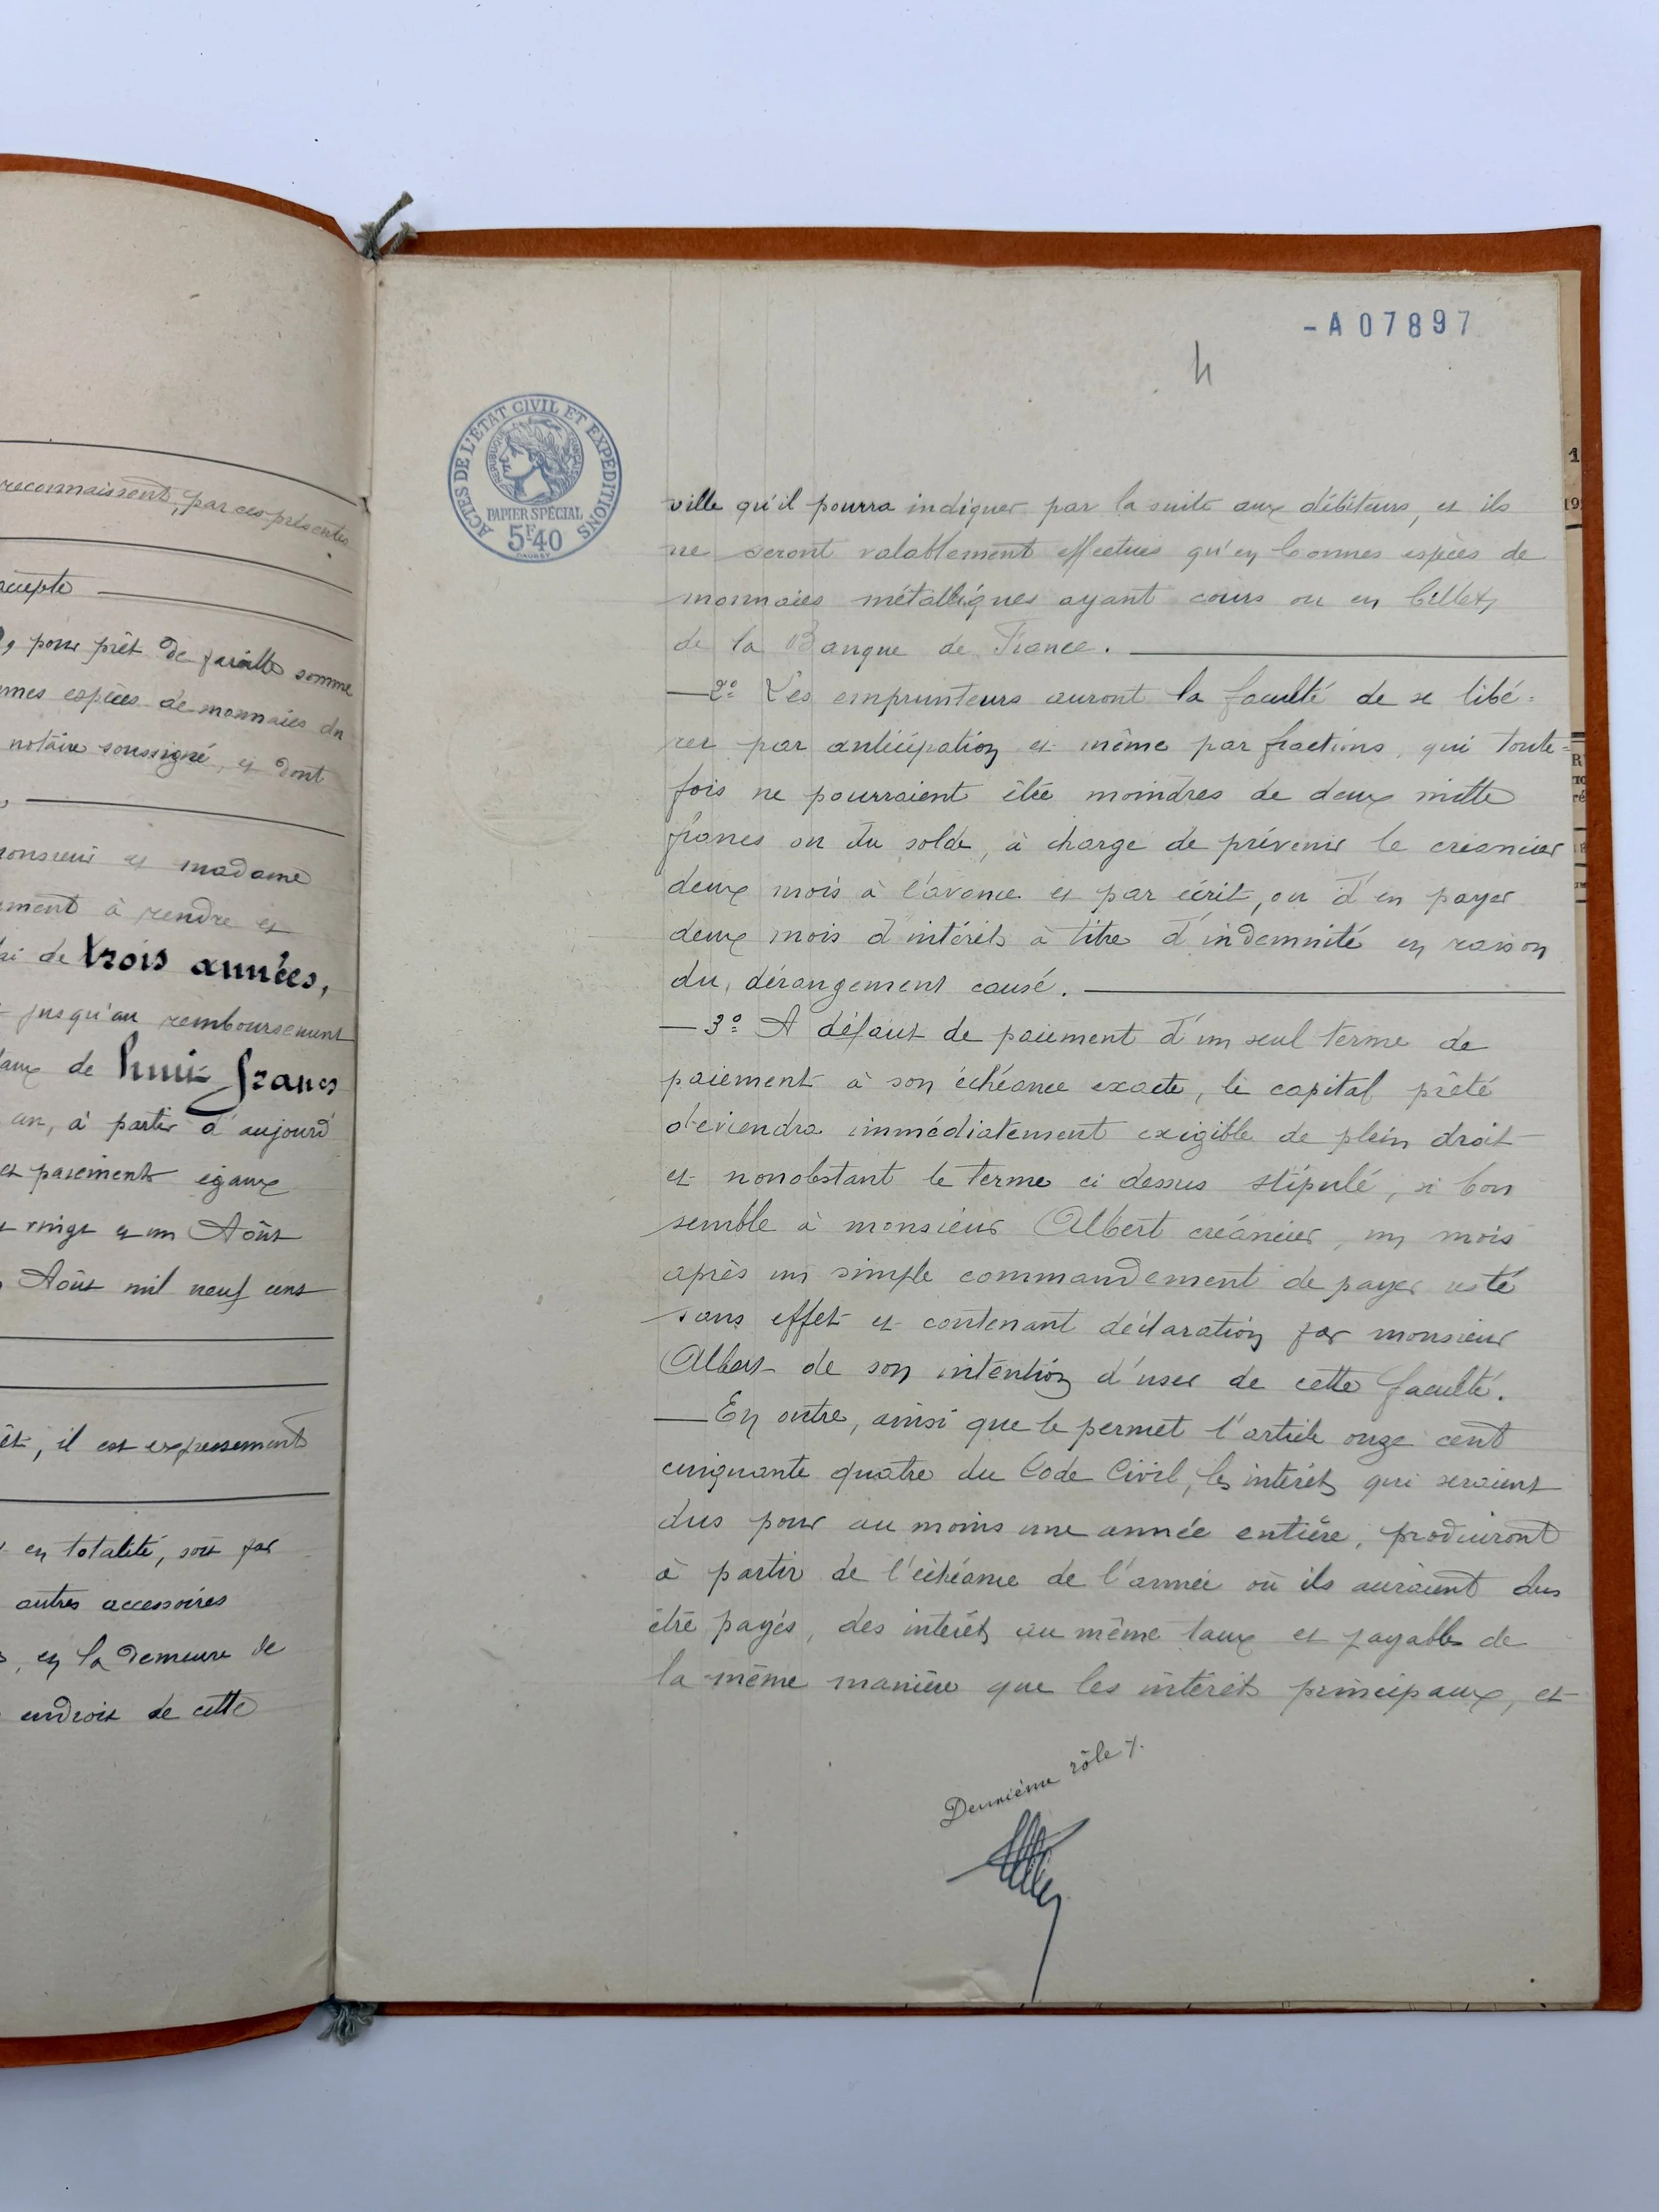 reconnaissent, par ces présentes
accepte
, pour prêt de pareille somme
espèces de monnaies du
notaire soussigné, et dont
monsieur et madame
à rendre et
de trois années,
jusqu'au remboursement
de huit francs
an, à partir d'aujourd'
et paiements égaux
vingt et un Août
Août mil neuf cent
il est expressément
en totalité, soit par
autres accessoires
, en la demeure de
endroit de cette
-A07897
4
ACTES DE L'ÉTAT CIVIL ET EXPÉDITIONS
RÉPUBLIQUE FRANÇAISE
PAPIER SPÉCIAL
5F40
ville qu'il pourra indiquer par la suite aux débiteurs, et ils
ne seront valablement effectués qu'en bonnes espèces de
monnaies métalliques ayant cours ou en billets
de la Banque de France.
— 2º Les emprunteurs auront la faculté de se libé=
rer par anticipation et même par fractions, qui toute=
fois ne pourraient être moindres de deux mille
francs ou du solde, à charge de prévenir le créancier
deux mois à l'avance et par écrit, ou d'en payer
deux mois d'intérêts à titre d'indemnité en raison
du dérangement causé.
— 3º A défaut de paiement d'un seul terme de
paiement à son échéance exacte, le capital prêté
deviendra immédiatement exigible de plein droit
et nonobstant le terme ci dessus stipulé, si bon
semble à monsieur Albert créancier, un mois
après un simple commandement de payer resté
sans effet et contenant déclaration par monsieur
Albert de son intention d'user de cette faculté.
— En outre, ainsi que le permet l'article onze cent
cinquante quatre du Code Civil, les intérêts qui seraient
dus pour au moins une année entière, produiront
à partir de l'échéance de l'année où ils auraient dus
être payés, des intérêts au même taux et payables de
la même manière que les intérêts principaux, et
Deuxième rôle %.